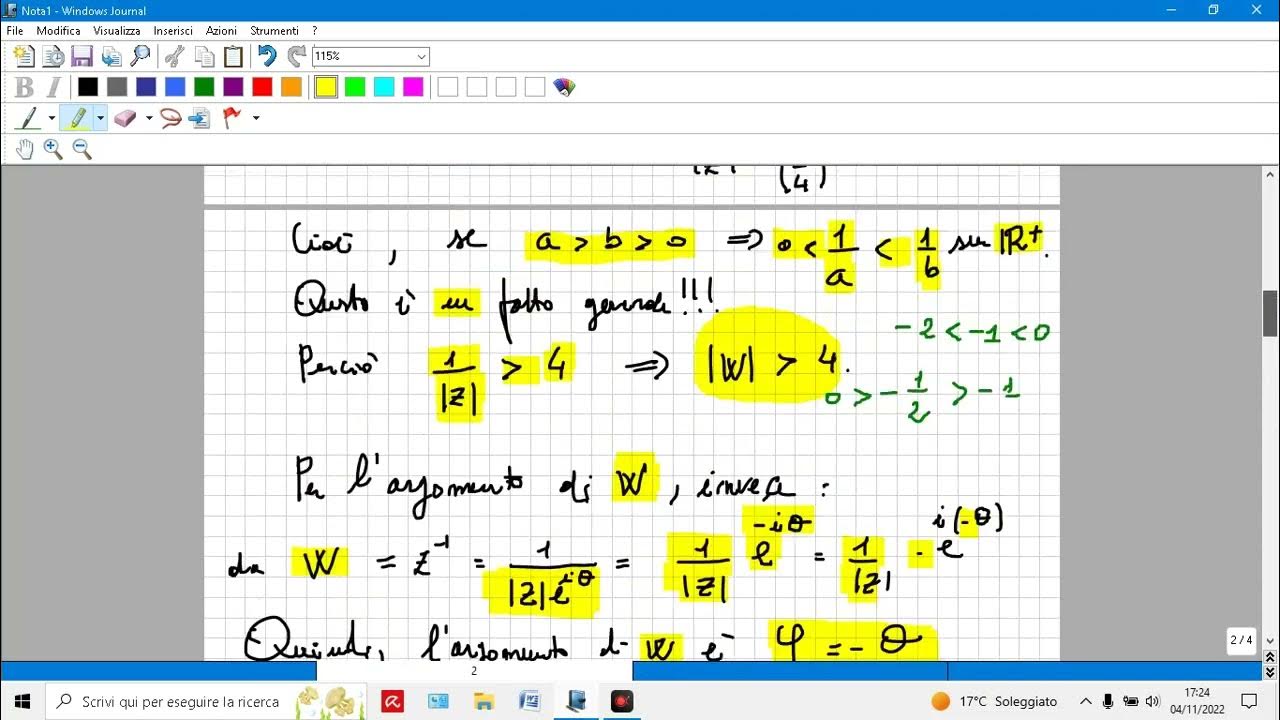 Nota1 - Windows Journal
File Modifica Visualizza Inserisci Azioni Strumenti ?
115%
B I
Cioè, se a > b > 0 ⟹ 0 < 1/a < 1/b su ℝ⁺.
Questo è un fatto generale!!!
-2 < -1 < 0
Perciò 1/|z| > 4 ⟹ |w| > 4.
0 > -1/2 > -1
Per l'argomento di w, invece:
da w = z⁻¹ = 1/(|z|e^{iθ}) = 1/|z| e^{-iθ} = 1/|z| · e^{i(-θ)}
Quindi, l'argomento di w è φ = -θ
2 / 4
2
Scrivi qui per eseguire la ricerca
17°C Soleggiato
17:24
04/11/2022